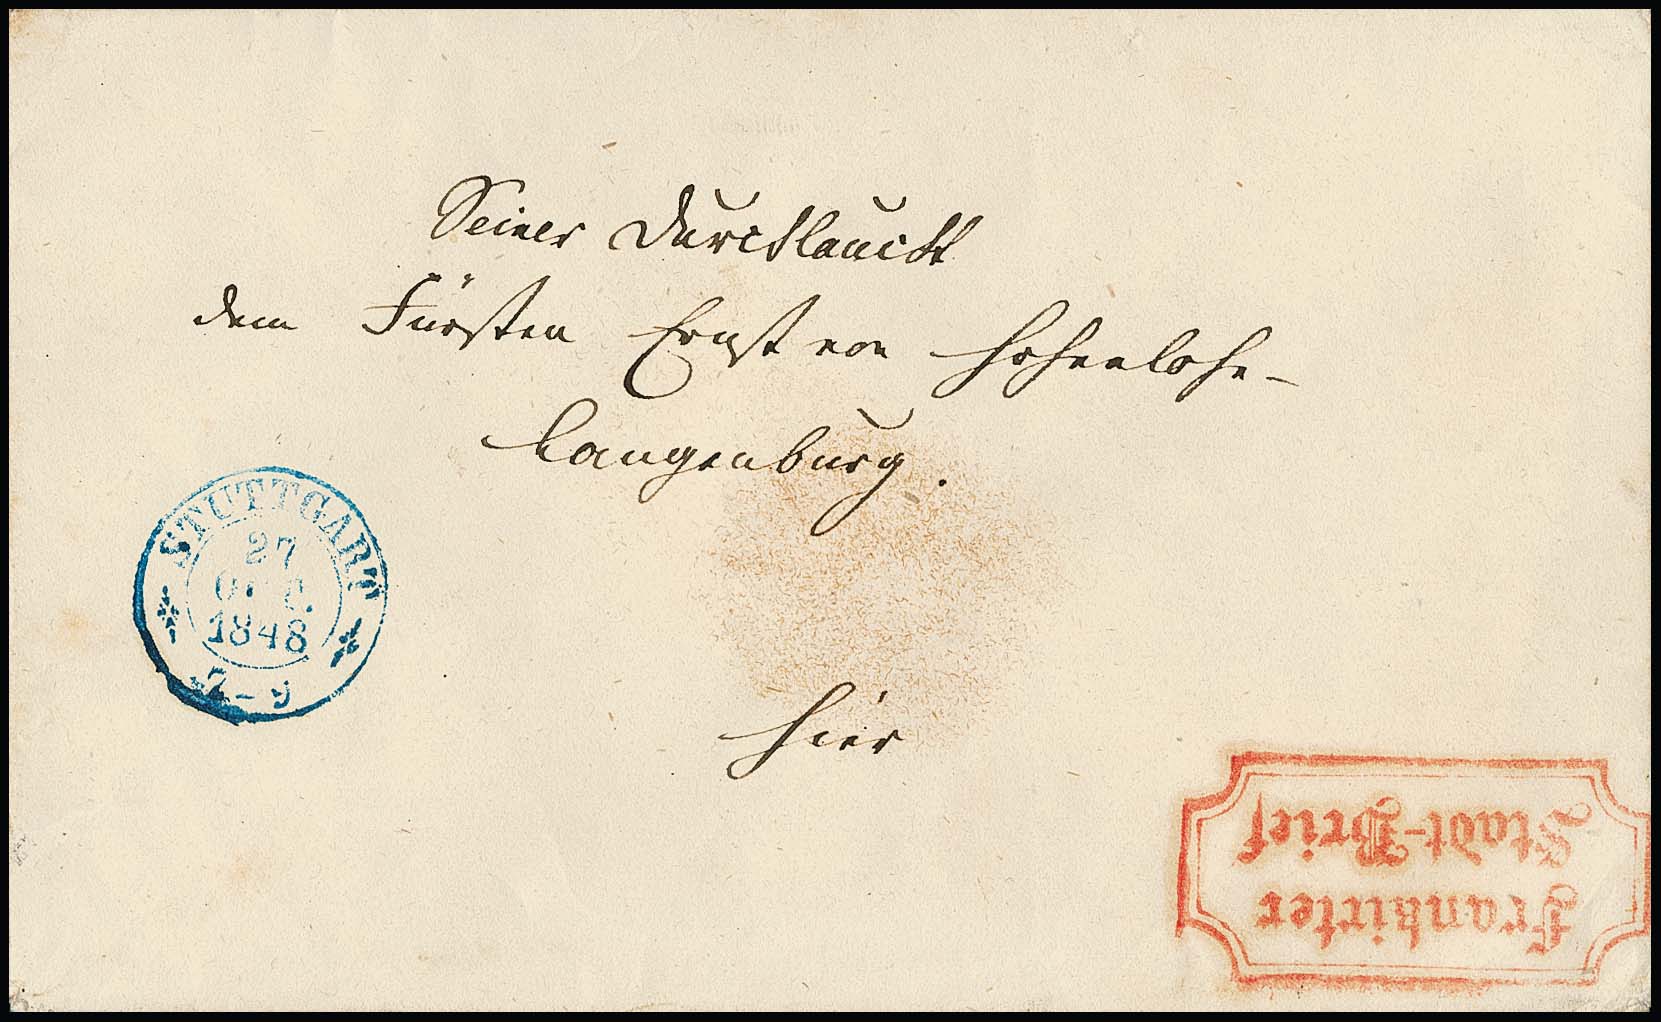 Seiner Durchlaucht
dem Fürsten Ernst von Hohenlohe-
Langenburg.
STUTTGART
27
OCT.
1848
7-9
hier
Frankirter
Stadt-Brief